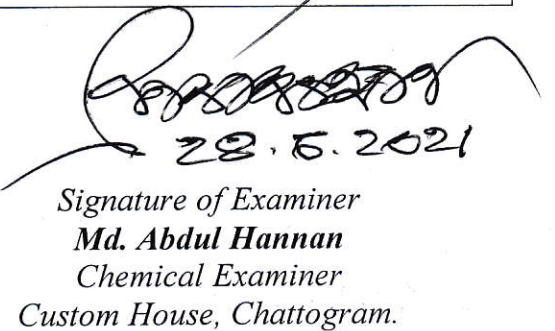 28.6.2021
Signature of Examiner
Md. Abdul Hannan
Chemical Examiner
Custom House, Chattogram.